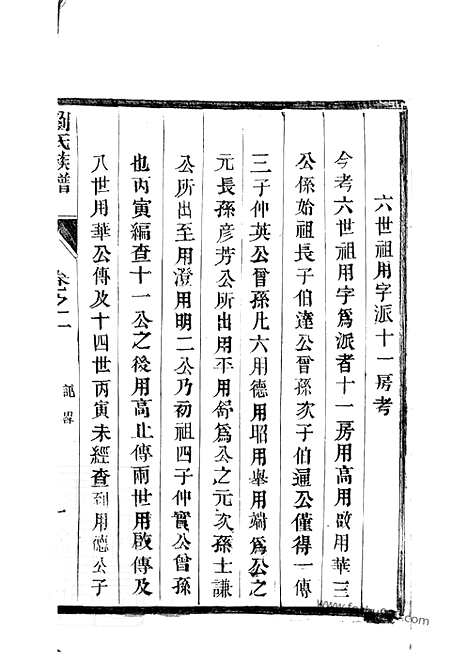 六世祖用字派十一房考
今考六世祖用字爲派者十一房用高用啟用華三
公係始祖長子伯達公曾孫次子伯暹公僅得一傳
三子仲英公曾孫凡六用德用昭用舉用端爲公之
元長孫彥芳公所出用平用舒爲公之元次孫士謙
公所出至用澄用明二公乃初祖四子仲實公曾孫
也丙寅編查十一公之後用高止傳兩世用啟傳及
八世用華公傳及十四世丙寅未經查到用德公子
劉氏族譜
卷之二
記畧
一